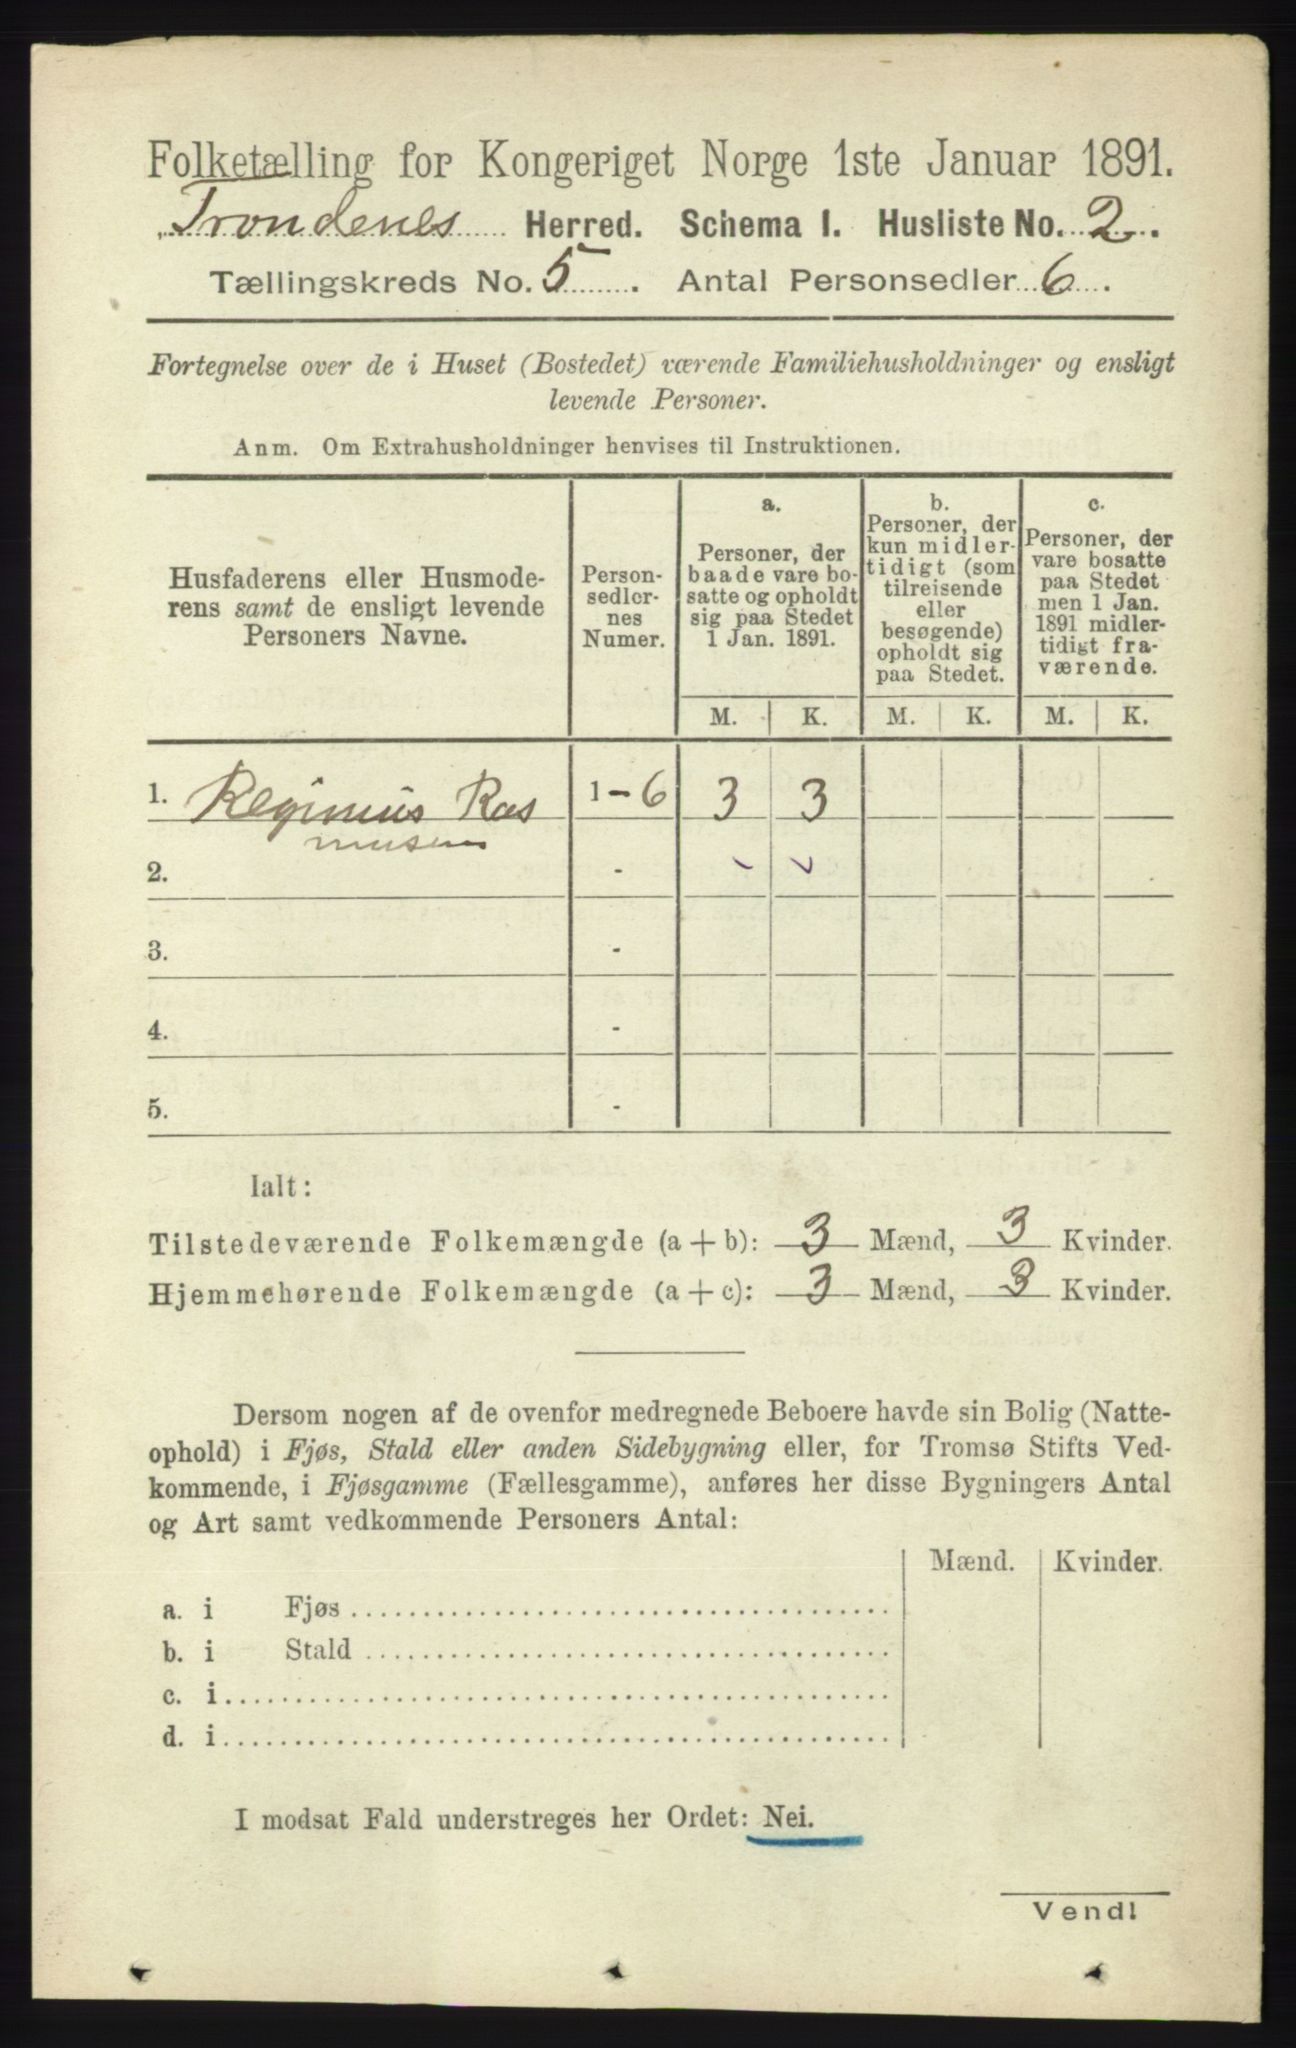 Folketælling for Kongeriget Norge 1ste Januar 1891.
Trondenes Herred. Schema I. Husliste No. 2.
Tællingskreds No. 5. Antal Personsedler 6.
Fortegnelse over de i Huset (Bostedet) værende Familiehusholdninger og ensligt
levende Personer.
Anm. Om Extrahusholdninger henvises til Instruktionen.
Husfaderens eller Husmode-
rens samt de ensligt levende
Personers Navne.
Person-
sedler-
nes
Numer.
a.
Personer, der
baade vare bo-
satte og opholdt
sig paa Stedet
1 Jan. 1891.
b.
Personer, der
kun midler-
tidigt (som
tilreisende
eller
besøgende)
opholdt sig
paa Stedet.
c.
Personer, der
vare bosatte
paa Stedet
men 1 Jan.
1891 midler-
tidigt fra-
værende.
M. K. M. K. M. K.
1. Reginius Ras 1-6 3 3
musen
2. -
3. -
4. -
5. -
Ialt:
Tilstedeværende Folkemængde (a + b): 3 Mænd, 3 Kvinder.
Hjemmehørende Folkemængde (a + c): 3 Mænd, 3 Kvinder.
Dersom nogen af de ovenfor medregnede Beboere havde sin Bolig (Natte-
ophold) i Fjøs, Stald eller anden Sidebygning eller, for Tromsø Stifts Ved-
kommende, i Fjøsgamme (Fællesgamme), anføres her disse Bygningers Antal
og Art samt vedkommende Personers Antal:
Mænd. Kvinder.
a. i Fjøs
b. i Stald
c. i
d. i
I modsat Fald understreges her Ordet: Nei.
Vend!